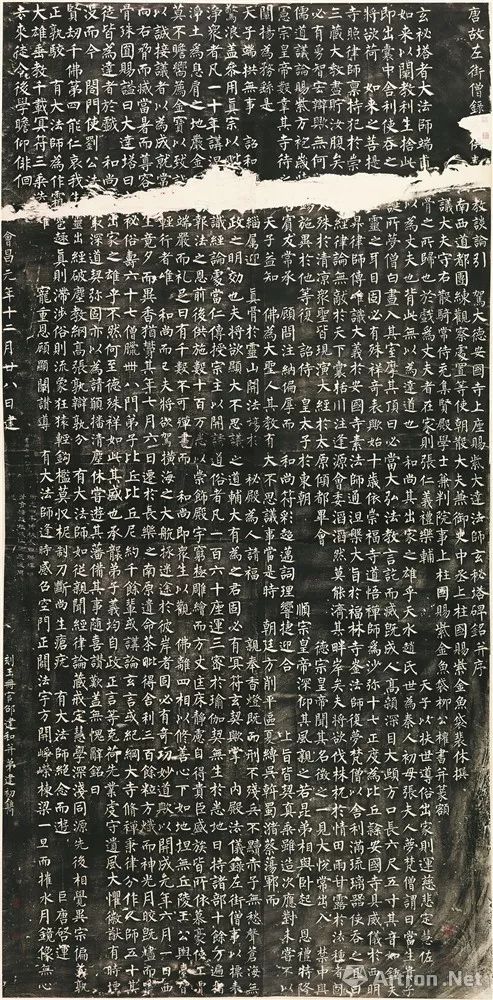 唐故左街僧錄 教談論引 駕大德安國寺上座賜紫大達法師玄秘塔碑銘并序
南西道都團練觀察處置等使朝散大夫兼御史中丞上柱國賜紫金魚袋裴休撰
議大夫守右散騎常侍充集賢殿學士兼判院事上柱國賜紫金魚袋柳公權書并篆額
玄秘塔者大法師端甫 骨之所歸也於戲為丈夫者在家則張仁義禮樂輔 天子以扶世導俗出家則運慈悲定慧佐
如來以闡教利生捨此 以為丈夫也背此無以為達道也 和尚其出家之雄乎天水趙氏世為秦人初母張夫人夢梵僧謂曰當生貴子
即出囊中舍利使吞之 誕所夢僧白晝入其室摩其頂曰必當大弘法教言訖而滅既成人高顙深目大頤方口長六尺五寸其音如鐘夫
將欲荷 如來之菩提 生靈之耳目固必有殊祥奇表歟始十歲依崇福寺道悟禪師為沙彌十七正度為比丘隸安國寺具威儀於西明
寺照律師稟持犯於崇 昇律師傳唯識大義於安國寺素法師通涅槃大旨於福林寺崟法師復夢梵僧以舍利滿琉璃器使吞之且曰
三藏大教盡貯汝腹矣 經律論無敵於天下囊括川注逢源會委滔滔然莫能濟其畔岸矣夫將欲伐株杌於情田雨甘露於法種者固
必有勇智宏辯歟無何 殊於清涼眾聖皆現演大經於太原傾都畢會 德宗皇帝聞其名徵之一見大悅常出入 禁中與
儒道議論賜紫方袍歲時 施異於他等復 詔侍 皇太子於東朝 順宗皇帝深仰其風親之若昆弟相與臥起 恩禮特隆
憲宗皇帝數幸其寺待之 賓友常承 顧問注納偏厚而 和尚符彩超邁詞理響捷迎合 上旨皆契真乘雖造次應對未嘗不以
闡揚為務繇是 天子益知 佛為大聖人其教有大不思議事當是時 朝廷方削平區夏縛吳斡蜀瀦蔡蕩鄆而
天子端拱無事 詔和 緇屬迎 真骨於靈山開法場於 秘殿為人請福 親奉香燈既而刑不殘兵不黷赤子無愁聲蒼海無
驚浪蓋參用真宗以毗 政之明效也夫將欲顯大不思議之道輔大有為之君固必有冥符玄契歟掌 內殿法儀錄左街僧事以標表
淨眾者凡一十年講涅 識經論處當仁傳授宗主以開誘道俗者凡一百六十座運三密於瑜伽契無生於悉地日持諸部十餘萬遍指
淨土為息肩之地嚴金 報法之恩前後供施數十百萬悉以崇飾殿宇窮極雕繪而方丈匡床靜慮自得貴臣盛族皆所依慕豪俠工賈
莫不瞻嚮薦金寶以致誠 端嚴而禮足日有千數不可殫書而 和尚即眾生以觀 佛離四相以修善心下如地坦無丘陵王公輿臺皆
以誠接議者以為成就常 輕行者唯 和尚而已夫將欲駕橫海之大航拯迷途於彼岸者固必有奇功妙道歟以開成元年六月一日西
向右脅而滅當暑而尊容 生竟夕而異香猶鬱其年七月六日遷於長樂之南原遺命荼毗得舍利三百餘粒方熾而神光月皎既燼而靈
骨珠圓賜謚曰大達塔曰 秘俗壽六十七僧臘卌八門弟子比丘比丘尼約千餘輩或講論玄言或紀綱大寺修禪秉律分作人師五十其
徒皆為達者於戲 和尚 出家之雄乎不然何至德殊祥如此其盛也承襲弟子義均自政正言等克荷先業虔守遺風大懼徽猷有時堙
沒而今 閤門使劉公法 最深道契彌固亦以為請願播清塵休嘗遊其藩備其事隨喜讚歎蓋無愧辭銘曰
賢劫千佛第四能仁哀我生 靈出經破塵教網高張孰辯孰分 有大法師如從親聞經律論藏戒定慧學深淺同源先後相覺異宗偏義孰
正孰駁 有大法師為作霜 趣真則滯涉俗則流象狂猿輕鉤檻莫收柅制刀斷尚生瘡疣 有大法師絕念而遊 巨唐啟運
大雄垂教千載冥符三乘迭 寵重恩顧顯闡讚導 有大法師逢時感召空門正闢法宇方開崢嶸棟梁一旦而摧水月鏡像無心
去來徒令後學瞻仰徘徊
會昌元年十二月廿八日建
刻玉冊官邵建和并弟建初鐫
Artron.Net